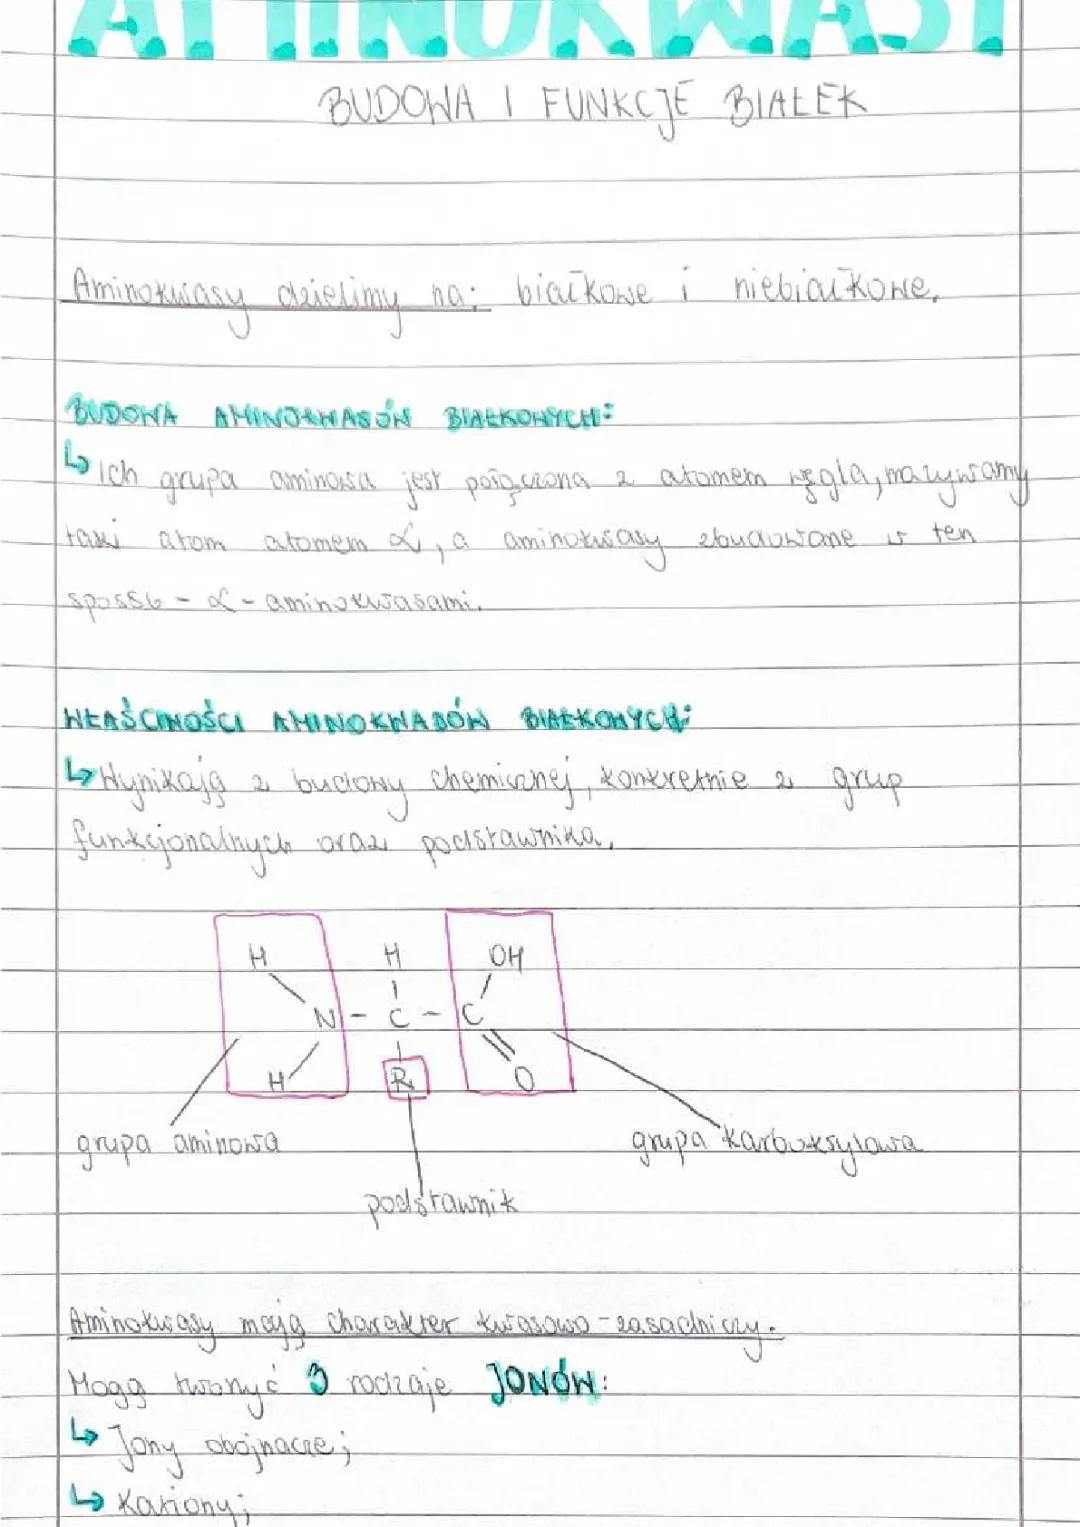 AMINOKWASY
BUDOWA I FUNKCJE BIAŁEK
Aminokwasy dzielimy na: białkowe i niebiałkowe.
BUDOWA AMINOKWASÓW BIAŁKOWYCH:
↳ Ich grupa aminowa jest połączona z atomem węgla, nazywamy
taki atom atomem α, a aminokwasy zbudowane w ten
sposób - α - aminokwasami.
WŁAŚCIWOŚCI AMINOKWASÓW BIAŁKOWYCH:
↳ Wynikają z budowy chemicznej, konkretnie z grup
funkcjonalnych oraz podstawnika.
H H OH
N - C - C
H R O
grupa aminowa
grupa karboksylowa
podstawnik
Aminokwasy mają charakter kwasowo - zasadniczy.
Mogą tworzyć 3 rodzaje JONÓW:
↳ Jony obojnacze;
↳ Kationy;